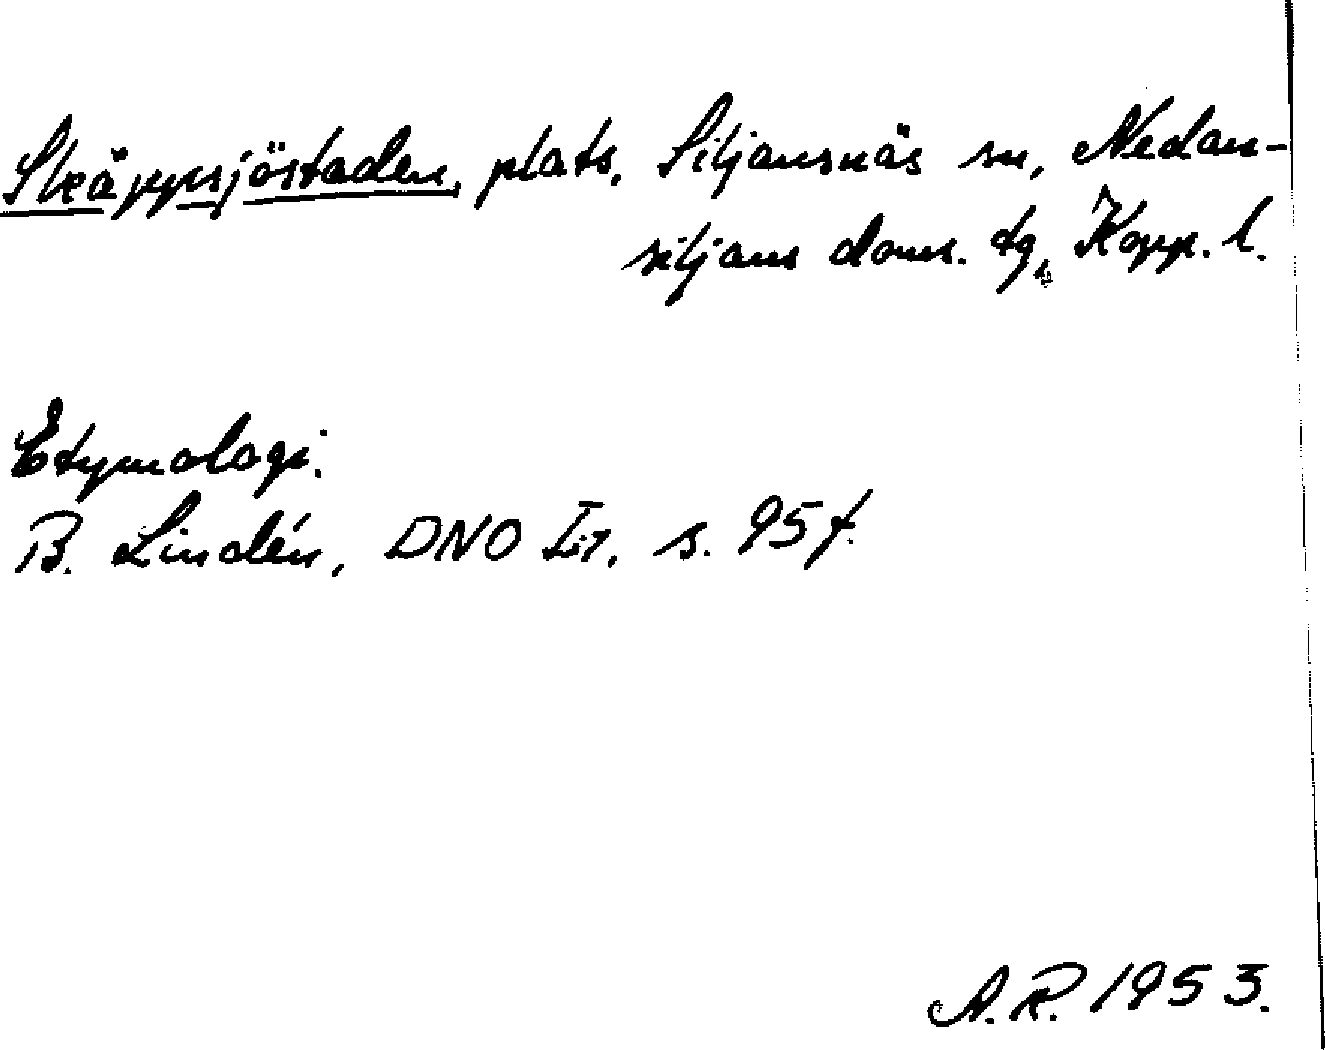 Skäppsjöstaden, plats, Siljansnäs sn, Nedan-
siljans doms. tg, Kopp. l.
Etymologi.
B. Lindén, DNO I:1, s. 95 f.
A. R. 1953.